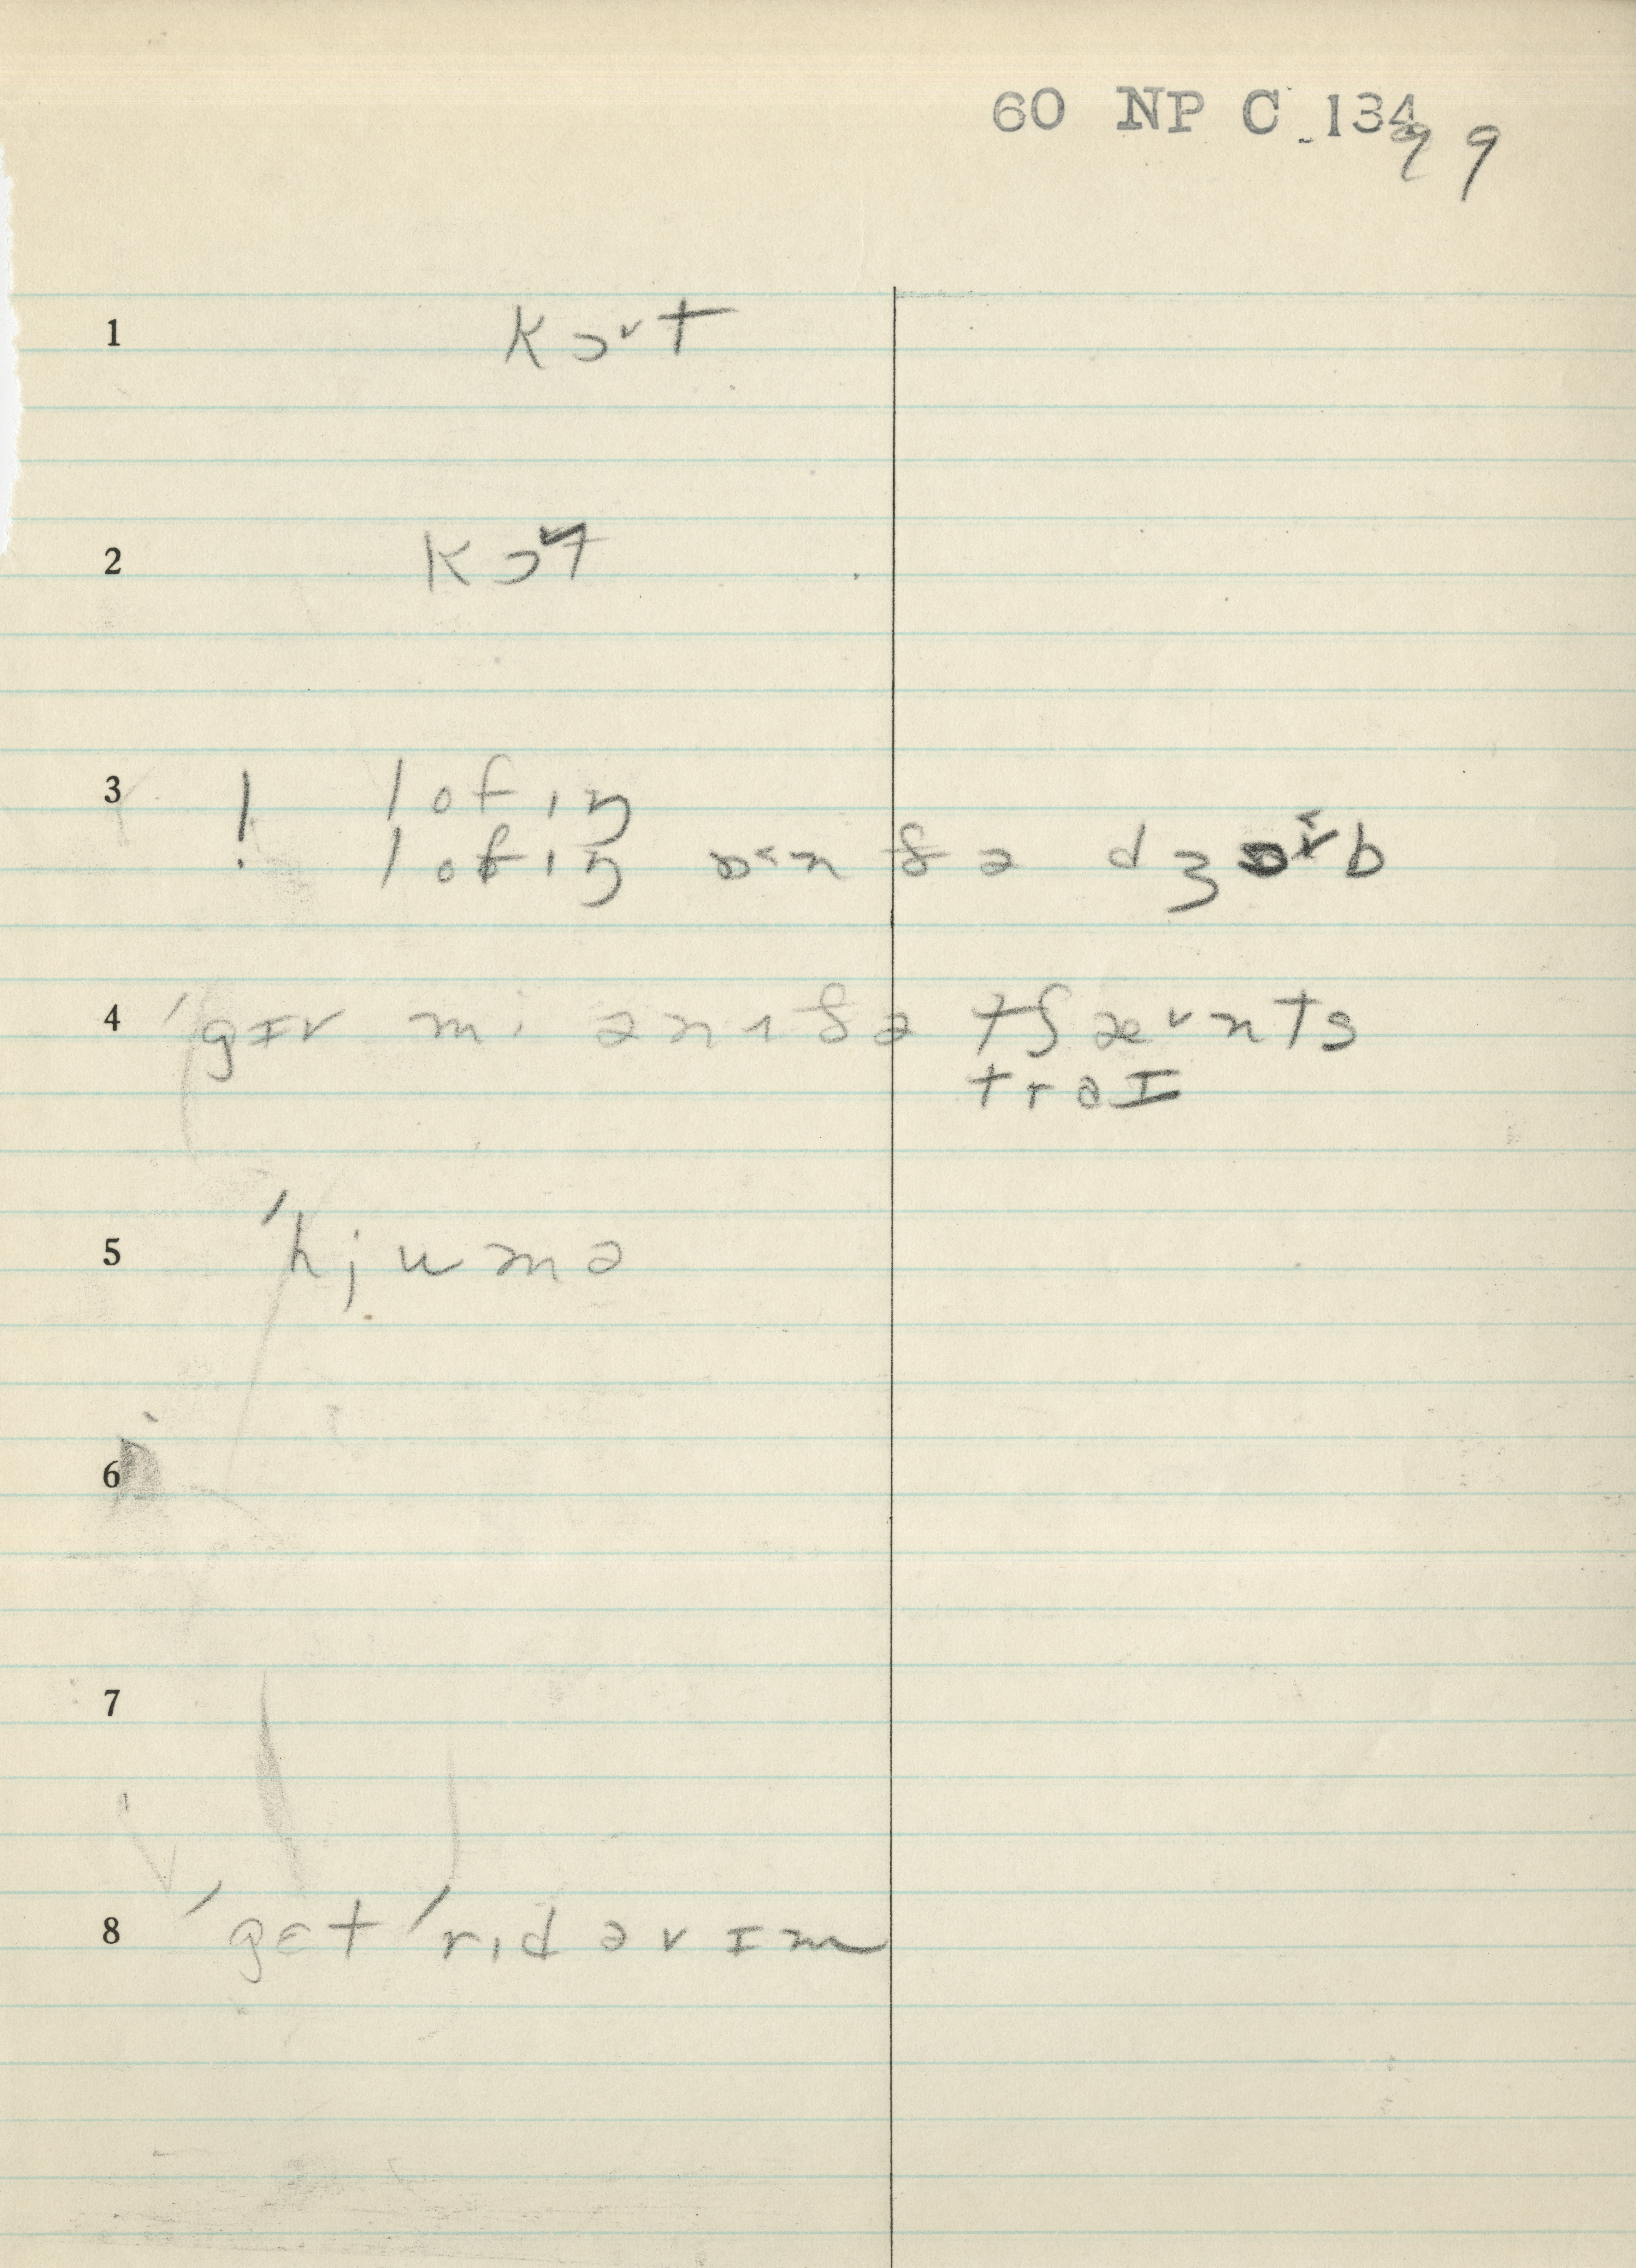 60 NP C 134
99
1 kɔ˅t
2 kɔ˅t
3 ! lofɪŋ
lofɪŋ ɒ˂n ðə dʒɔ˅b
4 ˈgɪv mi ənʌðə tʃæ˅nts
traɪ
5 ˈhjumə
6
7
8 ˈgɛt ˈrɪd əv ɪm